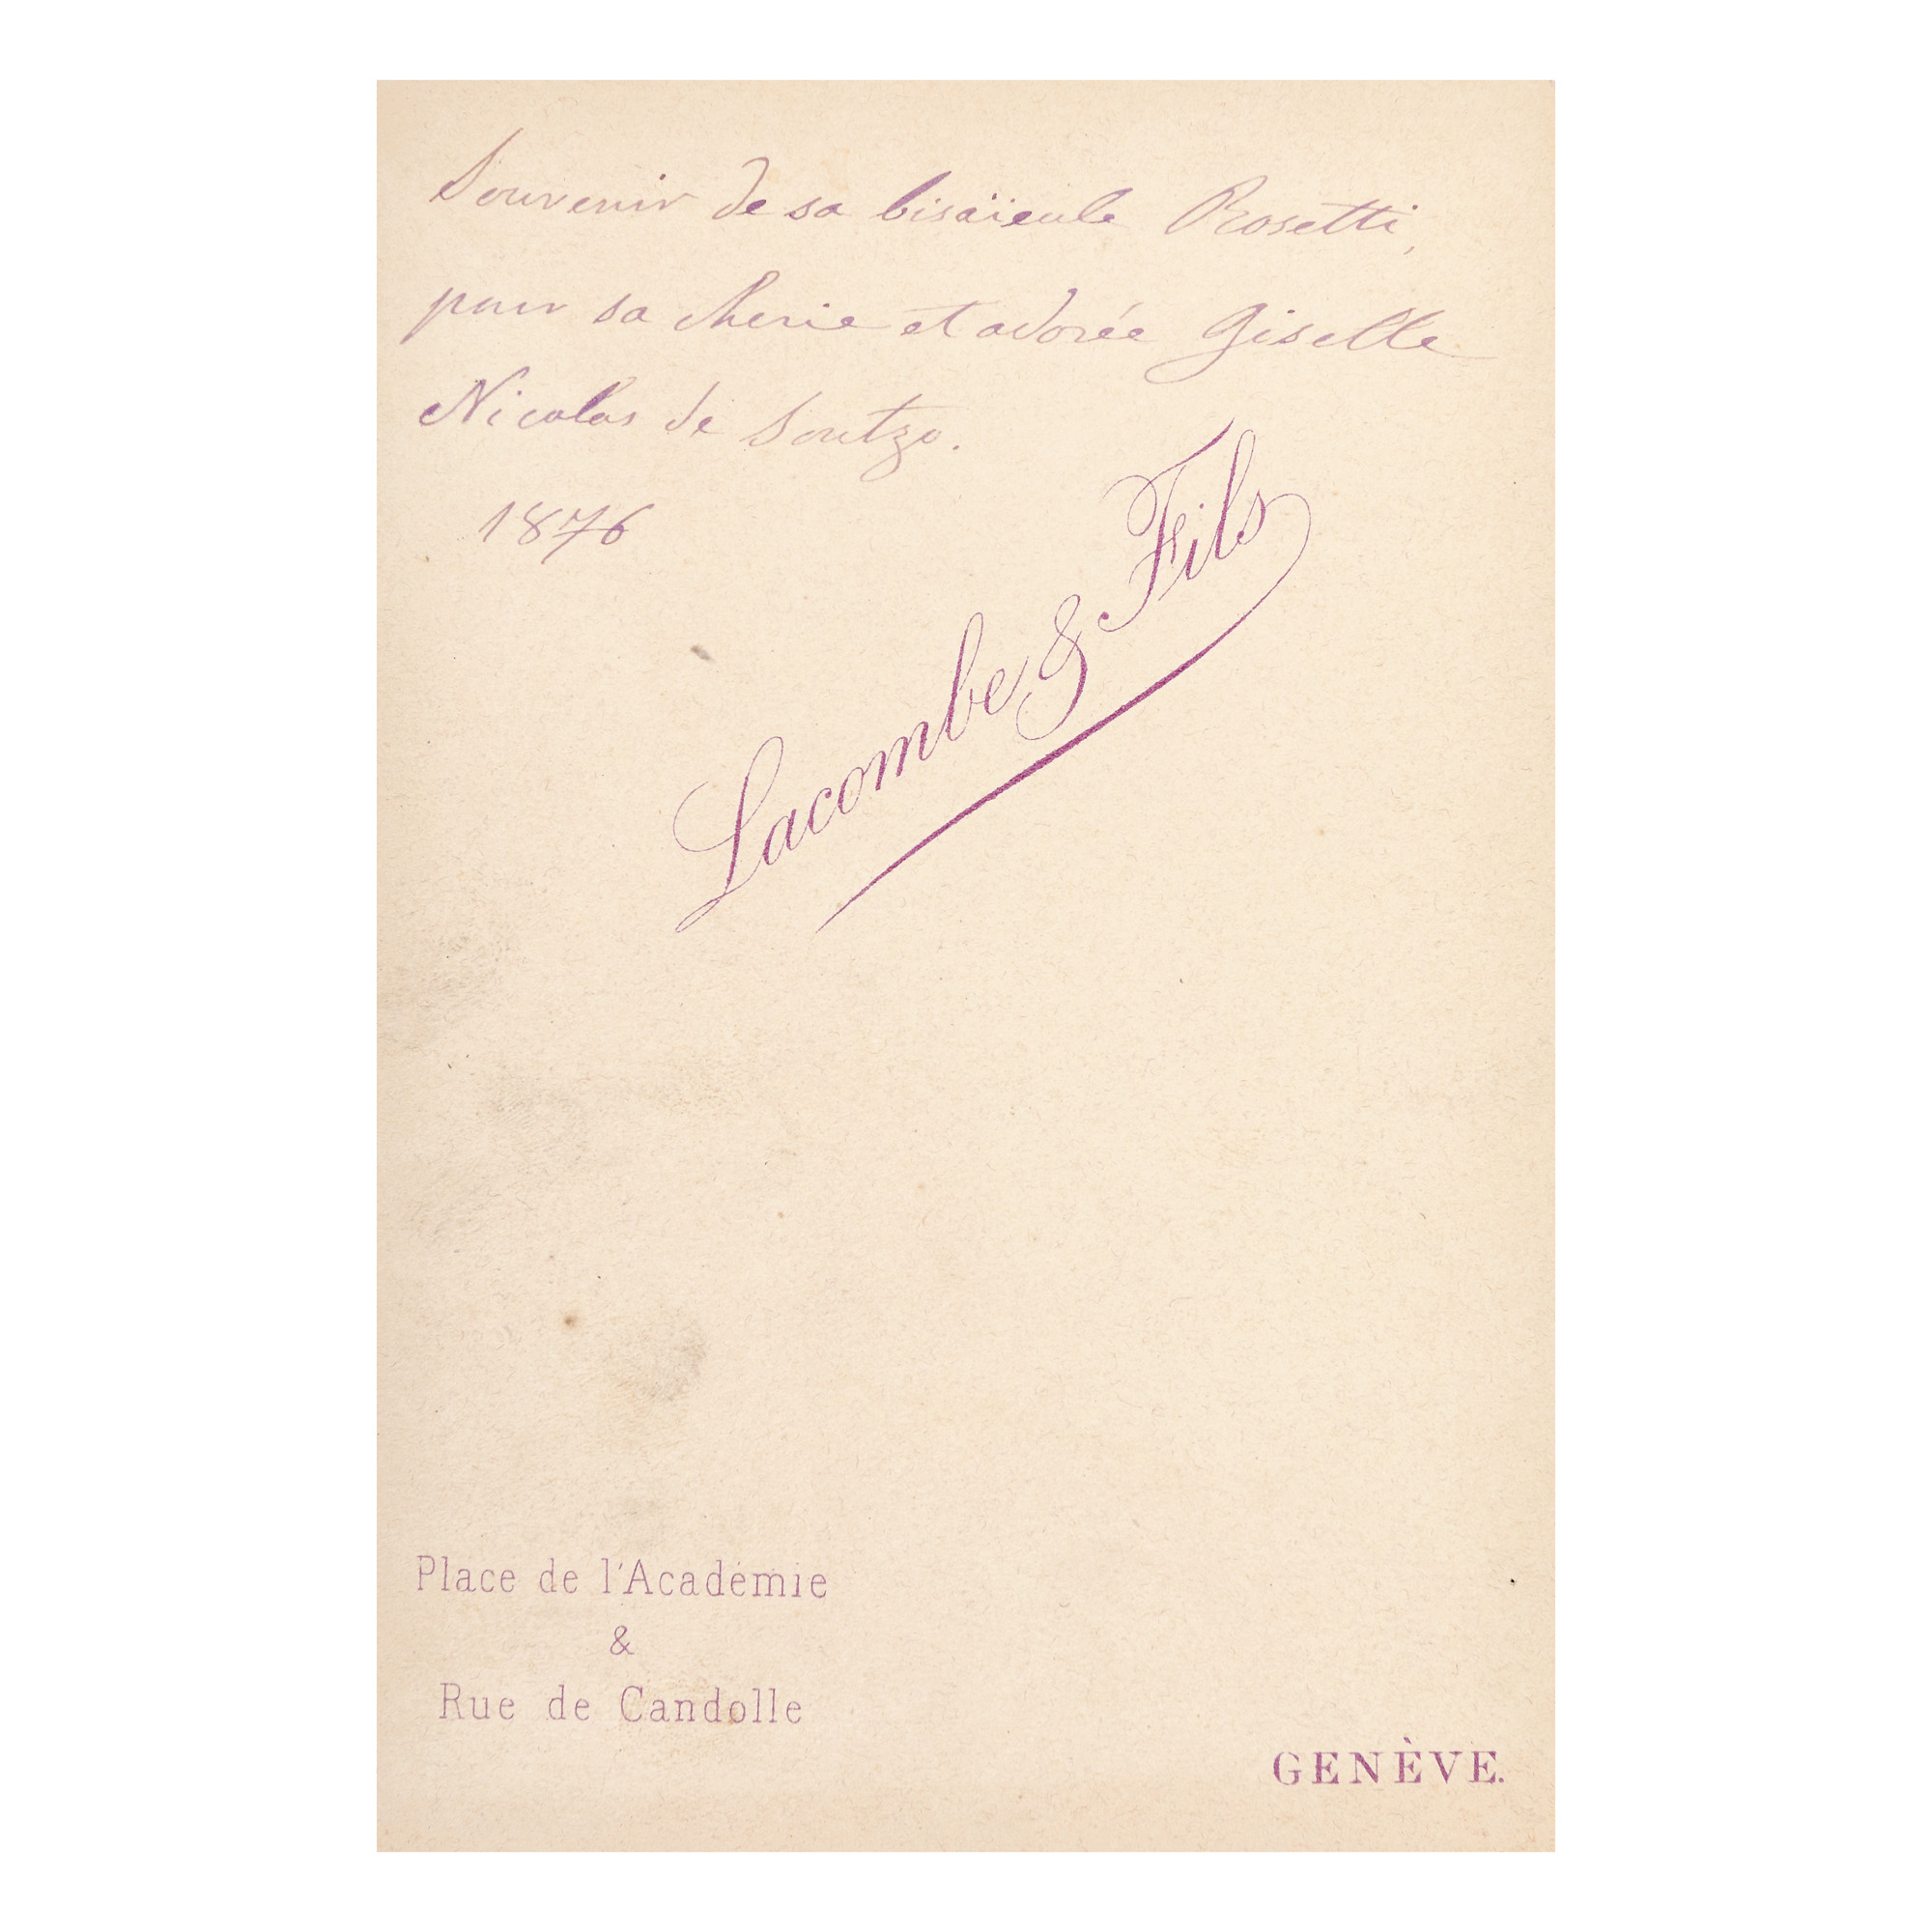 Souvenir de sa bisaïeule Rosetti,
pour sa cherie et adorée Giselle
Nicolas de Soutzo.
1876
Lacombe & Fils
Place de l'Académie
&
Rue de Candolle
GENÈVE.